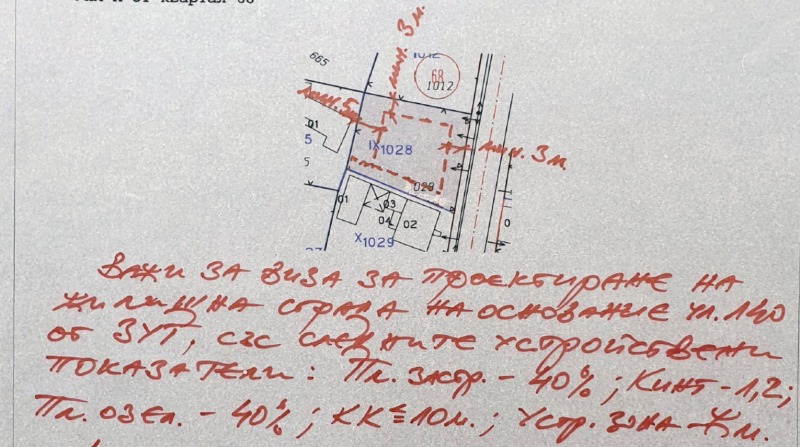 от квартал 68
мин. 3 м.
665
1012
68
1012
мин. 5 м.
01
5
IX1028
мин. 3 м.
5
01
03
04
02
X1029
0
Важи за виза за проектиране на
жилищна сграда на основание чл. 140
от ЗУТ, със следните устройствени
показатели: Пл. застр. - 40%; Кинт - 1,2;
Пл. озел. - 40%; КК ≤ 10 м.; Устр. зона - Жм.